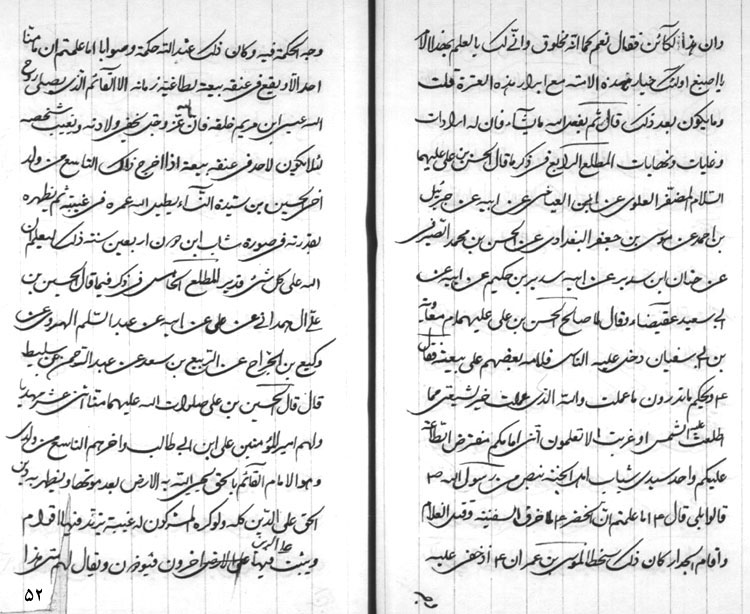 وان هذا لكائن فقال نعم كما انه مخلوق واني لك بالعلم بهذا الامر
يا اصبغ اولئك خيار هذه الامة مع ابرار هذه العترة قلت
وما يكون بعد ذلك قال ثم يفعل الله ما يشاء فان له ارادات
وغايات ونهايات المطلع الرابع في ذكر ما قال الحسن بن علي عليهما
السلام المظفر العلوي عن ابن العياشي عن ابيه عن جبرئيل
بن احمد عن موسى بن جعفر البغدادي عن الحسن بن محمد الصيرفي
عن حنان ابن سدير عن ابيه سدير بن حكيم عن ابيه عن
ابي سعيد عقيصاء وقال لما صالح الحسن بن علي عليهما م معاوية
بن ابي سفيان دخل عليه الناس فلامه بعضهم على بيعته فقال
ع ويحكم ما تدرون ما عملت والله الذي عملت خير لشيعتي مما
طلعت عليه الشمس او غربت الا تعلمون انني امامكم مفترض الطاعة
عليكم واحد سيدي شباب اهل الجنة بنص من رسول الله ص
قالوا بلى قال ع اما علمتم ان الخضر ع لما خرق السفينة وقتل الغلام
واقام الجدار كان ذلك سخطا لموسى بن عمران ع اذ خفي عليه
وجه الحكمة فيه وكان ذلك عند الله حكمة وصوابا اما علمتم ان ما منا
احد الا ويقع في عنقه بيعة لطاغية زمانه الا القائم الذي يصلي روح
الله عيسى ابن مريم خلفه فان الله عز وجل يخفي ولادته ويغيب شخصه
لئلا يكون لاحد في عنقه بيعة اذا خرج ذلك التاسع من ولد
اخي الحسين بن سيدة النساء يطيل الله عمره في غيبته ثم يظهره
بقدرته في صورة شاب ابن دون اربعين سنة ذلك ليعلم ان
الله على كل شئ قدير المطلع الخامس في ذكر فيما قال الحسين بن
علي ال‍همداني عن علي عن ابيه عن عبد السلام الهروي عن
وكيع بن الجراح عن الربيع بن سعد عن عبد الرحمن بن سليط
قال قال الحسين بن علي صلوات الله عليهما منا اثنى عشر مهديا
اولهم امير المؤمنين علي ابن ابي طالب واخرهم التاسع من ولدي
وهو الامام القائم بالحق يحيي الله به الارض بعد موتها ويظهر به دين
الحق على الدين كله ولو كره المشركون له غيبة يرتد فيها اقوام
ويثبت فيها على الدين اخرون فيؤذون ويقال لهم متى هذا
۵۲